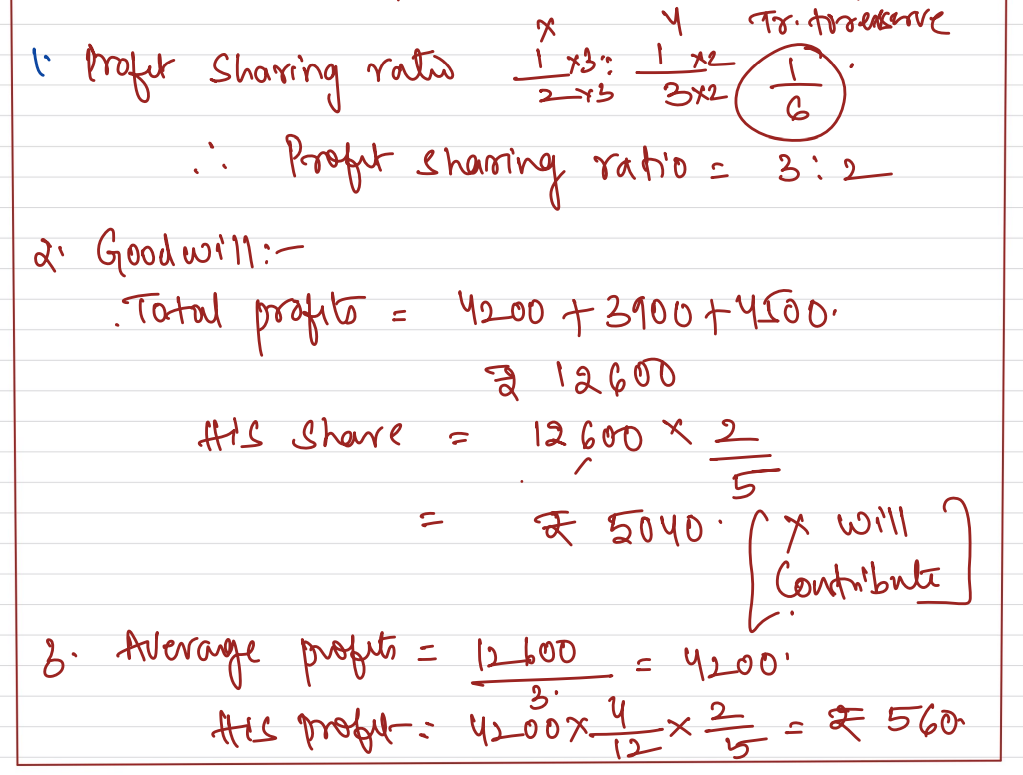 X Y Tr. to reserve
1. Profit sharing ratio 1/2 ×3/×3 : 1/3 ×2/×2 1/6
∴ Profit sharing ratio = 3:2
2. Goodwill:-
Total profits = 4200 + 3900 + 4500.
₹ 12600
His share = 12600 × 2/5
= ₹ 5040. [X will
Contribute]
3. Average profits = 12600/3. = 4200.
His profit = 4200 × 4/12 × 2/5 = ₹ 560.